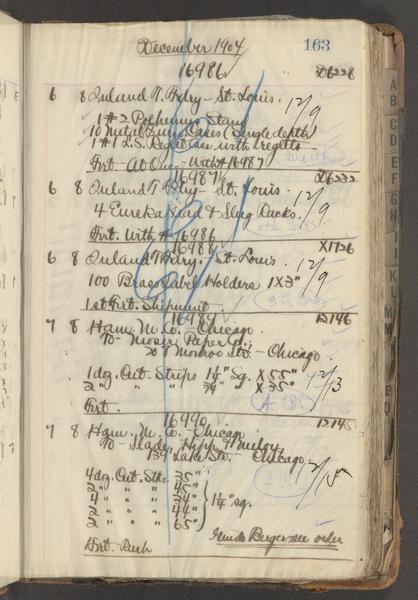 December 1904
163
16986
D6228
6 8 Inland T. Fdry - St. Louis. 12/9
1 #2 Polhemus Stand
10 Metal Furn Cases (Single depth
1 #1 L.S. Reglet Case with reglets
Frt - At Once - With #16987
16987
D6232
6 8 Inland T. Fdry - St. Louis. 12/9
4 Eureka Lead & Slug Racks.
Frt. With # 16986
16988
X1726
6 8 Inland T. Fdry. - St. Louis. 12/9
100 Brass Label Holders 1 X 3"
1st Frt. Shipment
16989
D146
7 8 Ham. M. Co. - Chicago.
To - Moser Paper Co.
Monroe Str. - Chicago.
1 doz. Cut. Strips 1½" Sq. X 55" 12/13
2 " " " ¾" " X 35"
Frt.
16990
7 8 Ham. M. Co. - Chicago
139 Lake St. - Chicago,
4 doz. Cut. Stks. 35"
2 " " " 45"
4 " " " 34"
2 " " " 44"
2 " " " 65"
1¼" sq.
Frt. Rush
Guido Berger see order
A
B
C
M